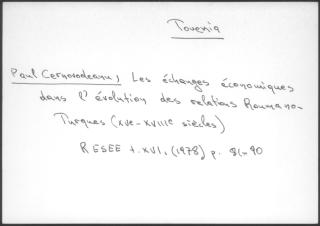 Tovenia
Paul Cernovodeanu, Les échanges économiques
dans l'évolution des relations Roumano-
Turques (XVe-XVIIIe siècles)
RESEE t. XVI, (1978) p. 81-90